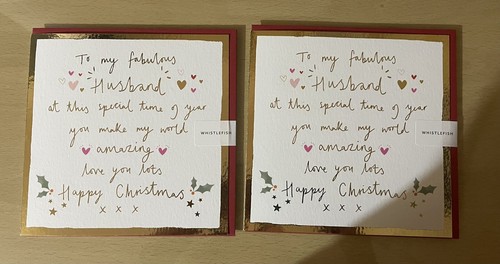 To my fabulous
Husband
at this special time of year
you make my world
amazing
love you lots
Happy Christmas
x x x
WHISTLEFISH
To my fabulous
Husband
at this special time of year
you make my world
amazing
love you lots
Happy Christmas
x x x
WHISTLEFISH